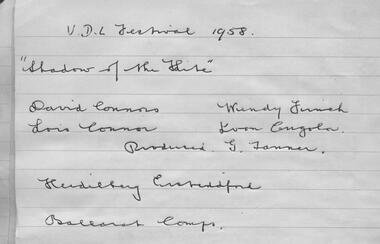 V.D.L Festival 1958.
"Shadow of the
David Connors Wendy
Lois Connor
Produced. G. Tanner.
Heidelberg Eisteddfod
Ballarat Comps.